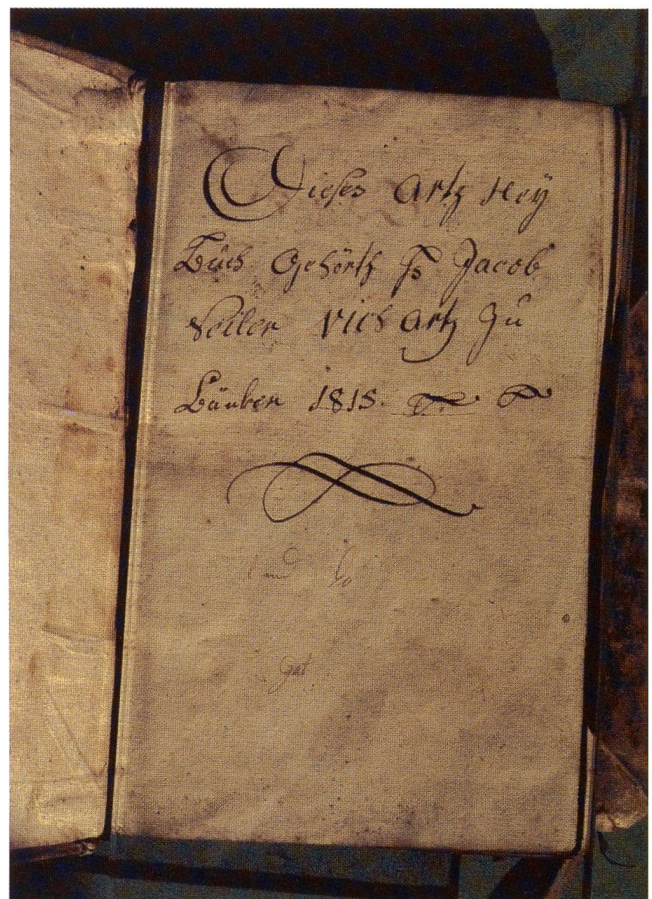 Dieses Artz Ney
Buch Gehörth Js Jacob
Seiler Vieh Artz Zu
Läuben 1818.
und so
gut